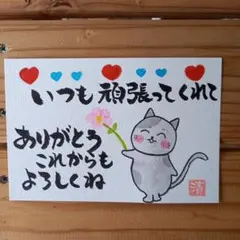 いつも頑張ってくれて
ありがとう
これからも
よろしくね